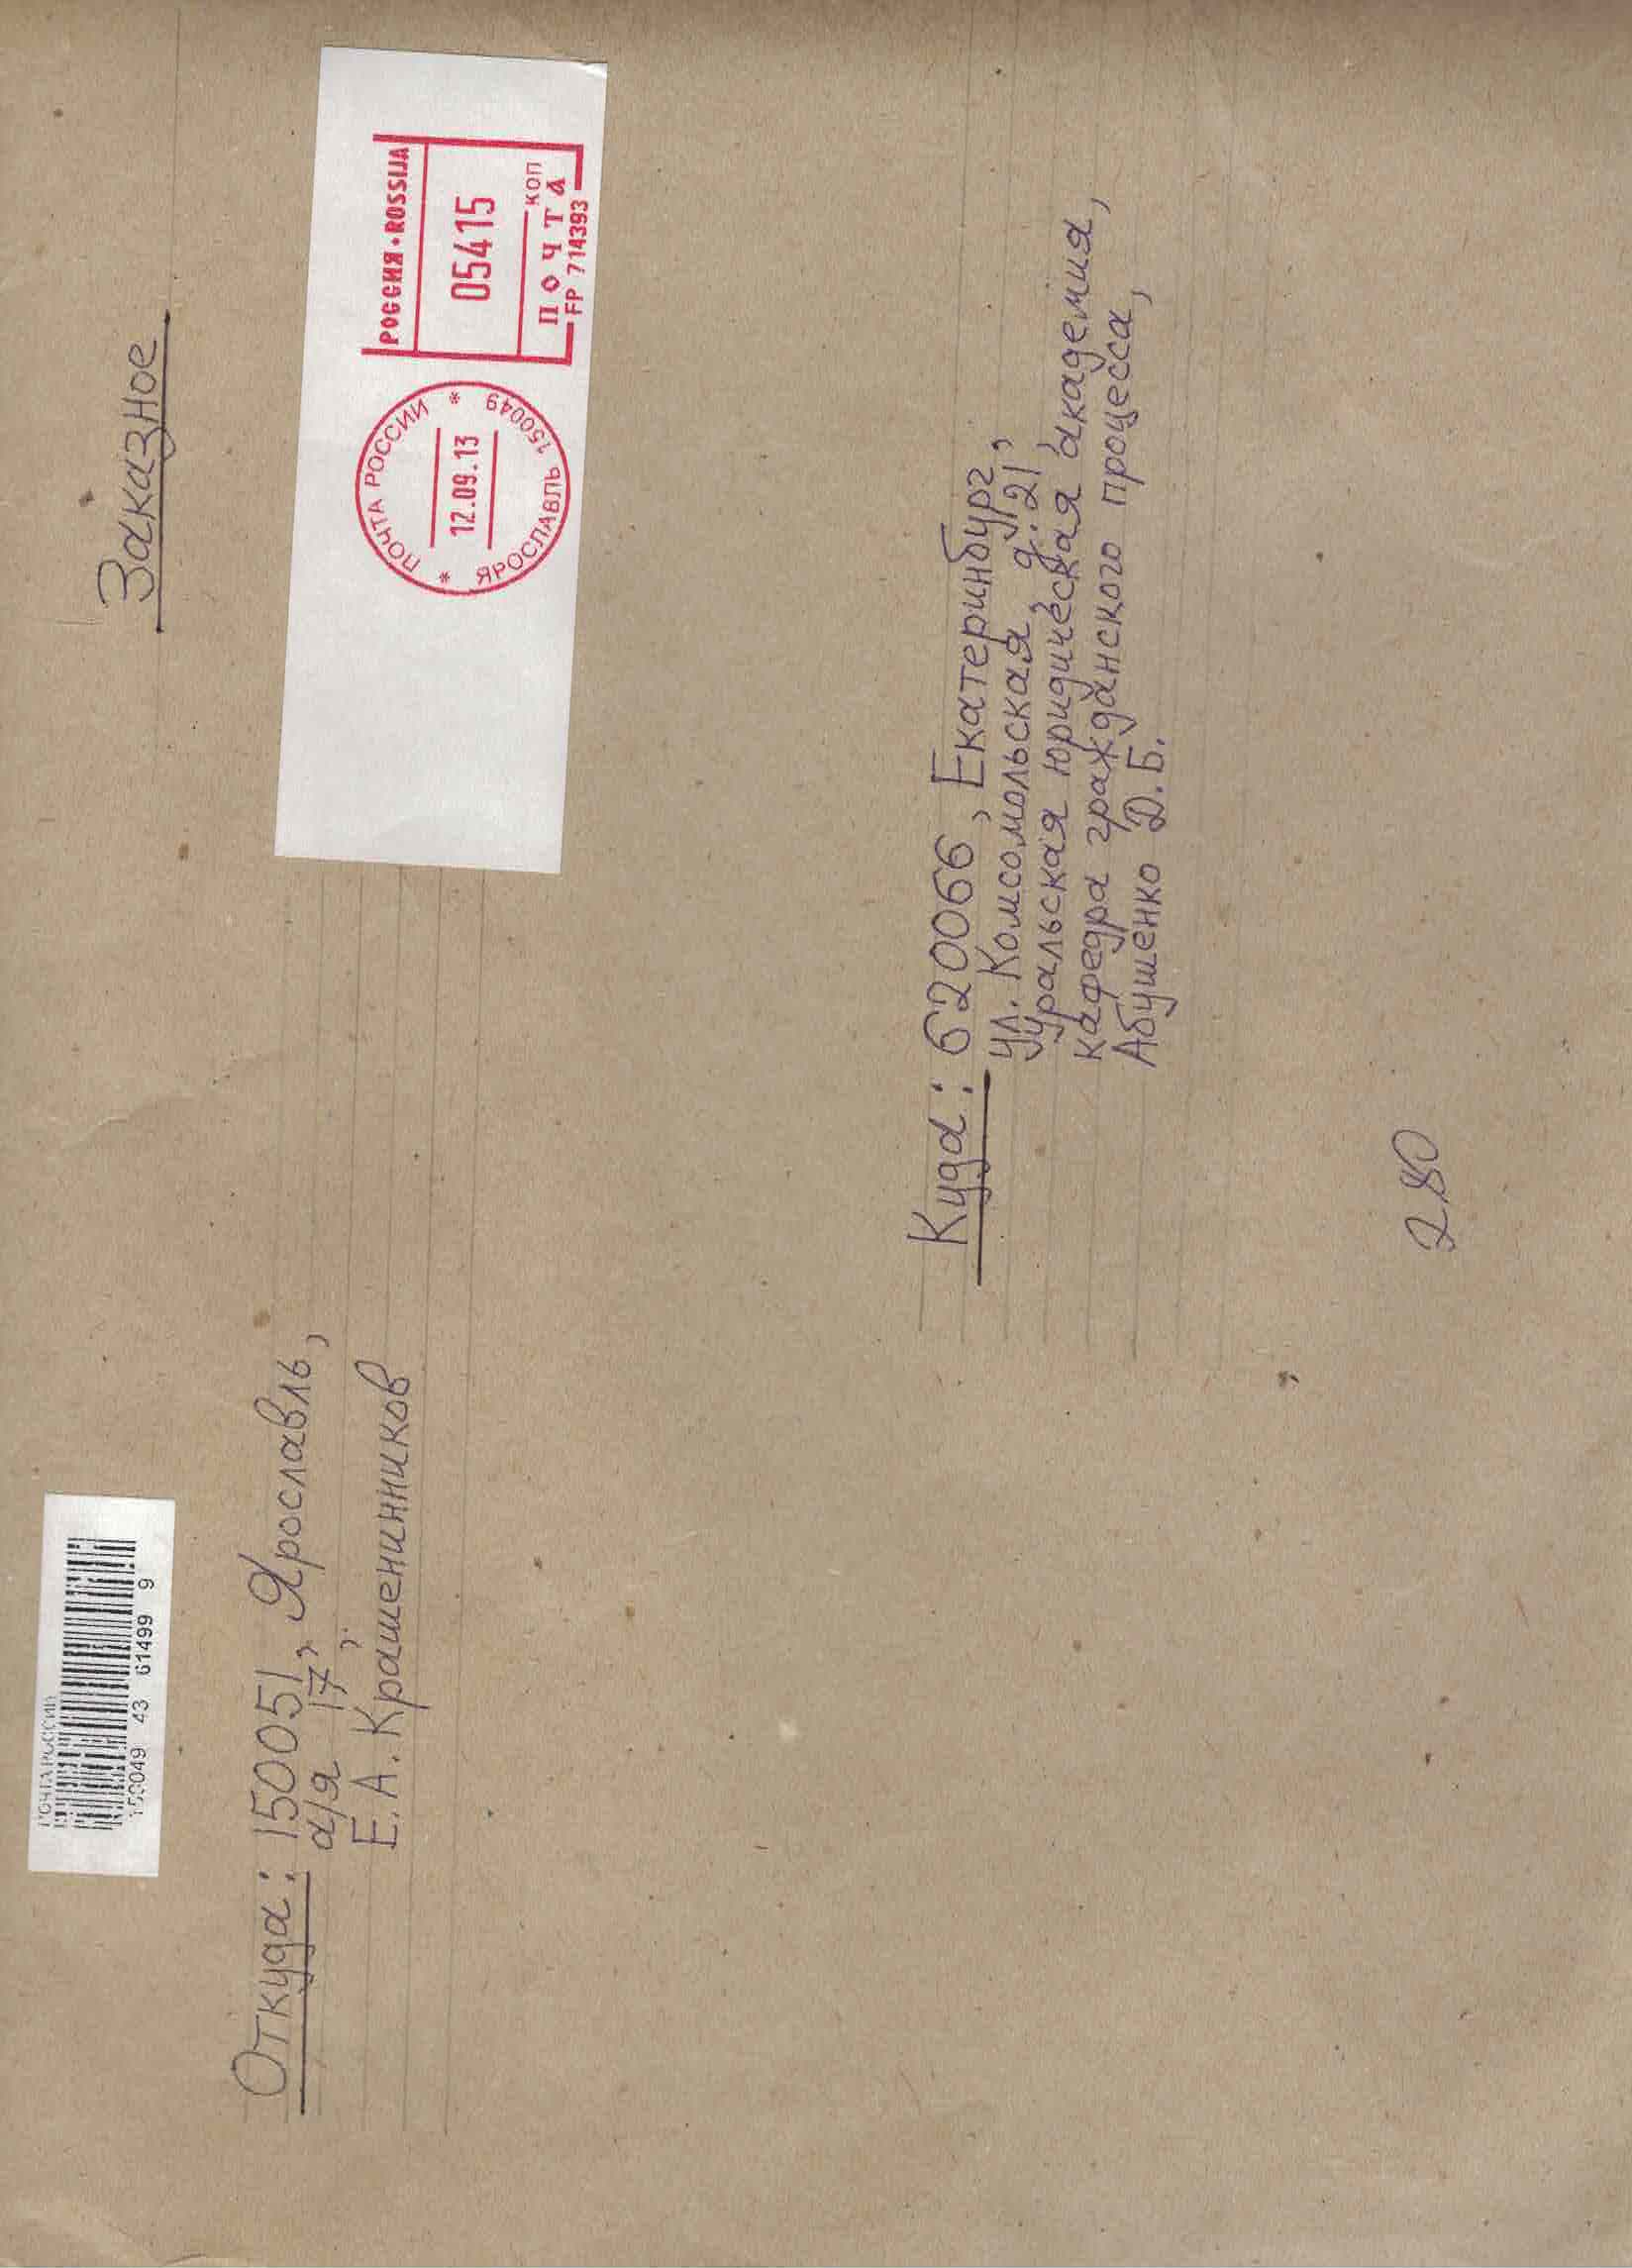 ПОЧТА РОССИИ
150049 43 61499 9
Заказное
Откуда: 150051, Ярославль,
а/я 17,
Е.А. Крашенинников
ПОЧТА РОССИИ
12.09.13
ЯРОСЛАВЛЬ 150049
РОССИЯ • ROSSIJA
05415
коп
ПОЧТА
FP 714393
Куда: 620066, Екатеринбург,
ул. Комсомольская, д. 21,
Уральская юридическая академия,
кафедра гражданского процесса,
Абушенко Д.Б.
280